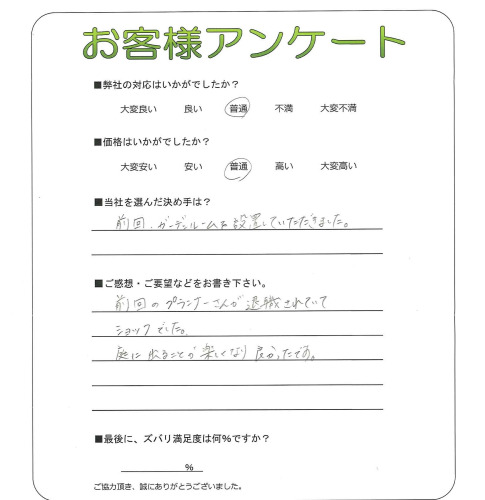 お客様アンケート
■弊社の対応はいかがでしたか？
大変良い 良い 普通 不満 大変不満
■価格はいかがでしたか？
大変安い 安い 普通 高い 大変高い
■当社を選んだ決め手は？
前回、ガーデンルームを設置していただきました。
■ご感想・ご要望などをお書き下さい。
前回のプランナーさんが退職されていて
ショックでした。
庭に出ることが楽しくなり良かったです。
■最後に、ズバリ満足度は何％ですか？
％
ご協力頂き、誠にありがとうございました。